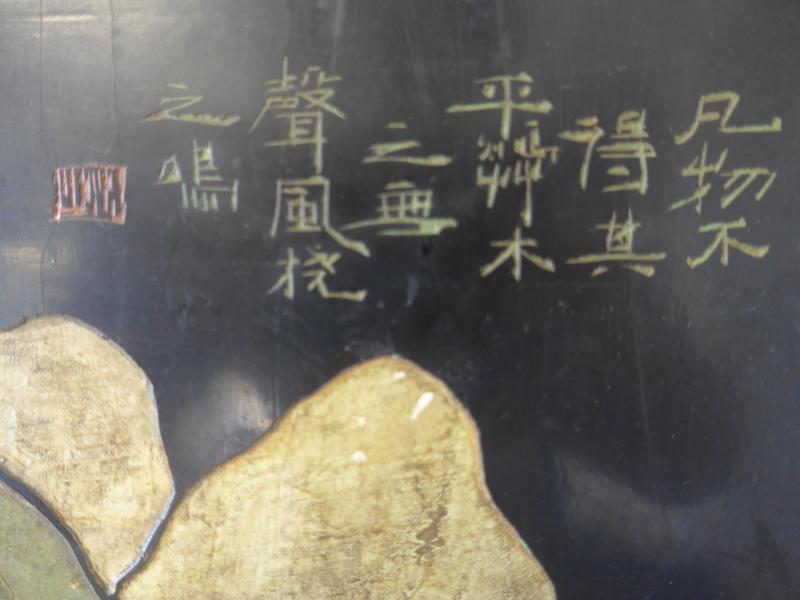 凡物不
得其
平鳴艸木
之無
聲風挠
之鳴